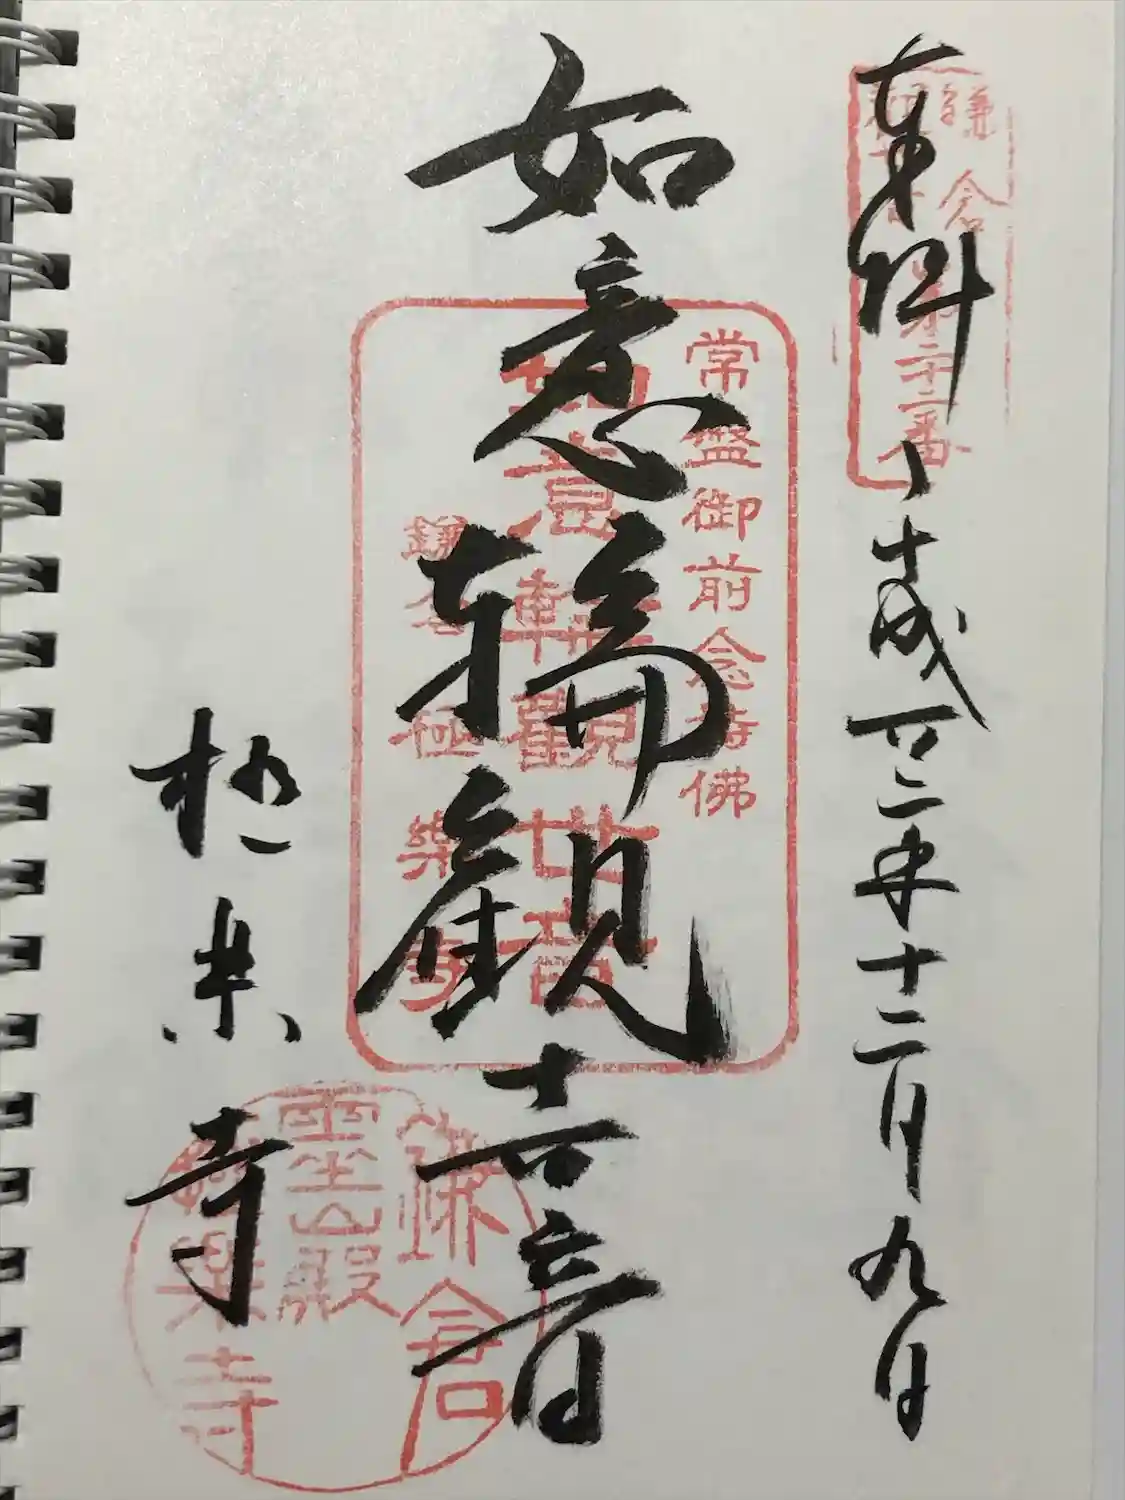 奉拝
平成廿二年十二月九日
鎌倉
第二十二番
如意輪観世音
常盤御前念持佛
如意輪観世音
鎌倉極楽寺
極楽寺
鎌倉
霊山殿
極楽寺